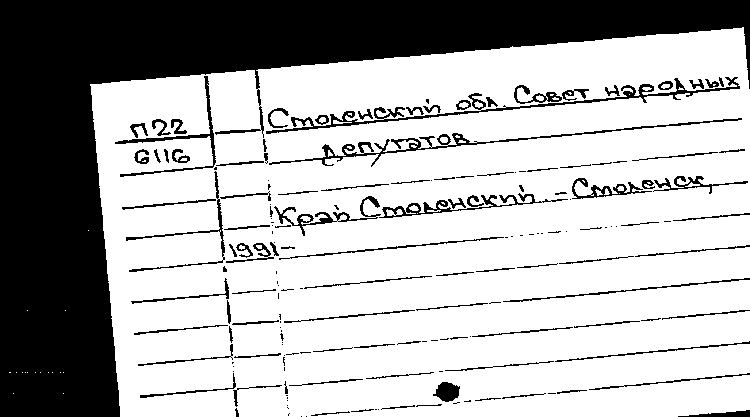 П22
G116
Смоленский обл. Совет народных
депутатов.
Край Смоленский. - Смоленск,
1991-